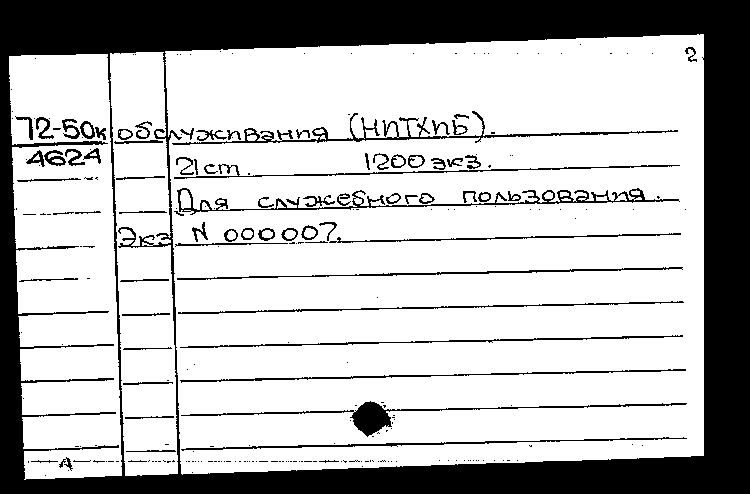 2.
72-50к обслуживания (НИТХИБ).
4624 21 ст. 1200 экз.
Для служебного пользования.
Экз N 000007.
А